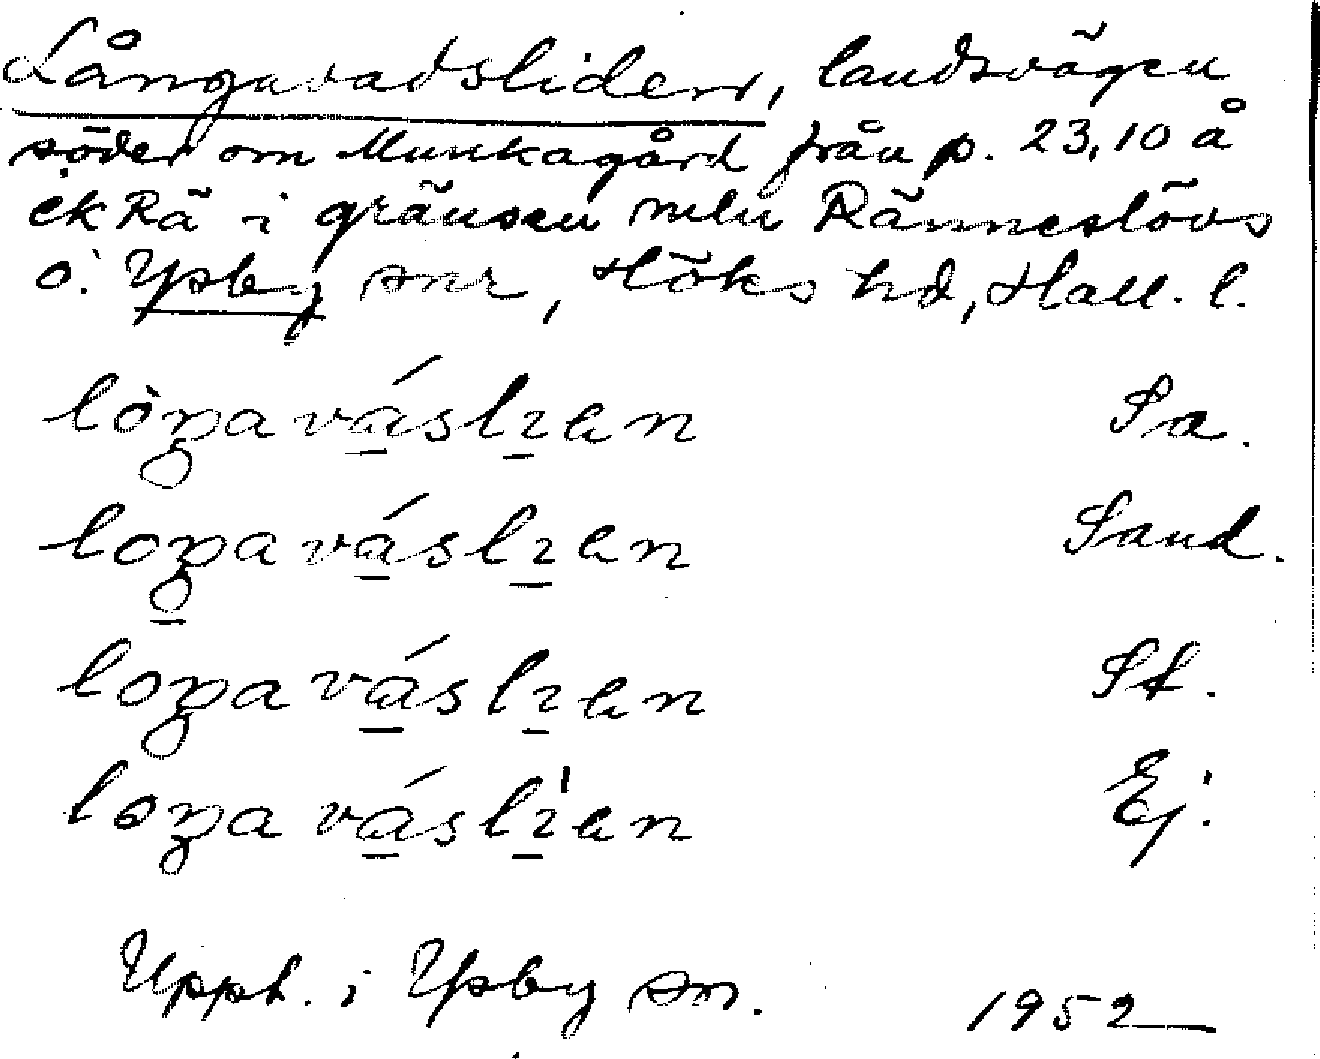 Långavadsliden, landsvägen
söder om Munkagård från p. 23,10 å
ek Rä i gränsen mln Ränneslövs
o. Ysby snr, Höks hd, Hall. l.
lòŋavá̱sli̱en Sa.
loŋavá̱sli̱en Sand.
loŋavá̱sli̱en St.
loŋavá̱sli̱en Ej.
Uppt. i Ysby sn. 1952